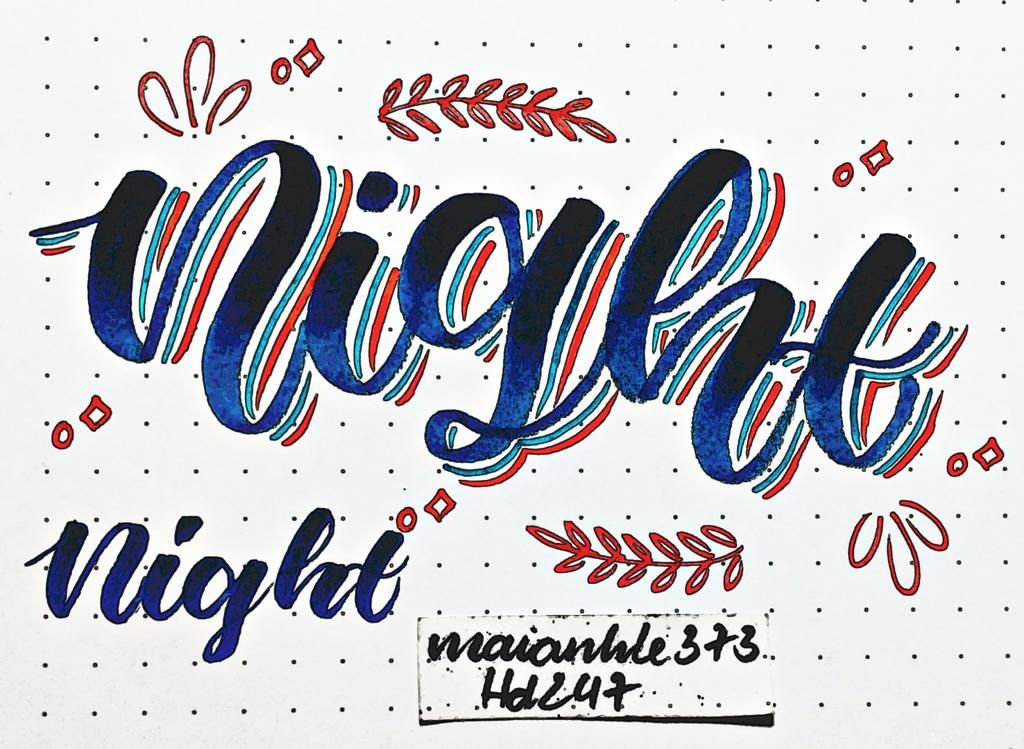 Night
Night
maianhle373
Hd247